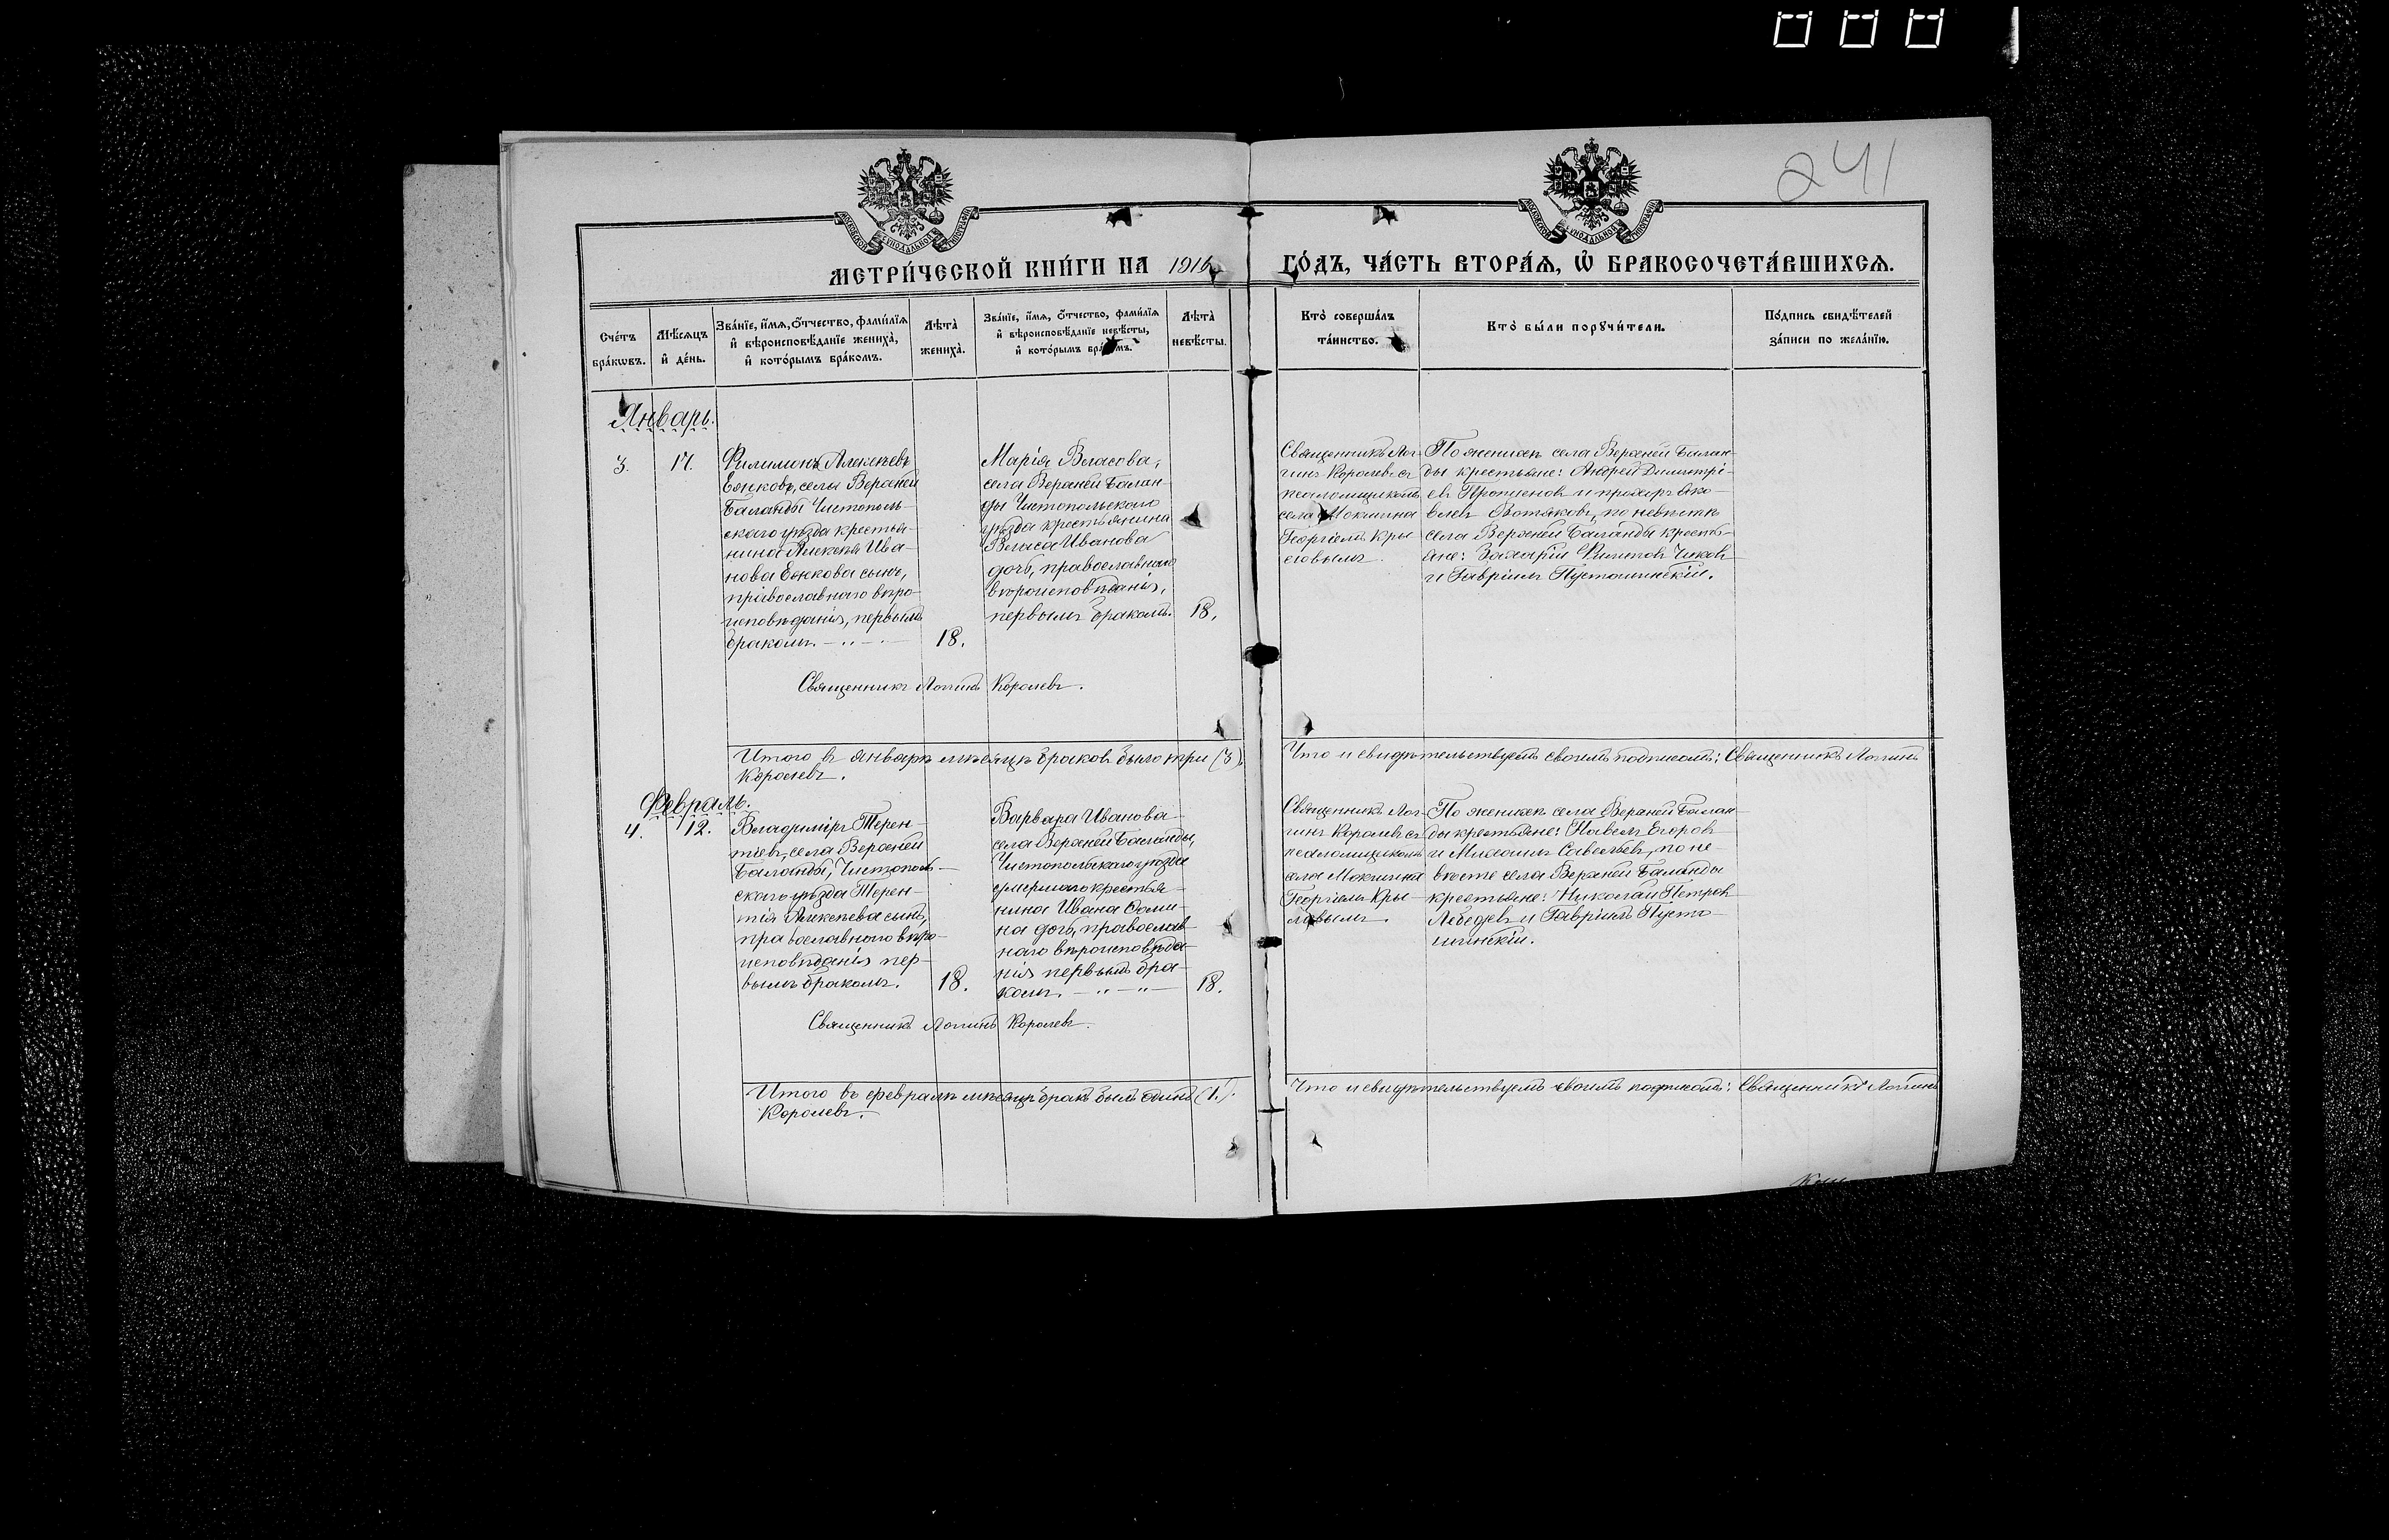 241
МОСКОВСКОЙ СѴНОДАЛЬНОЙ ТИПОГРАФІИ
МОСКОВСКОЙ СѴНОДАЛЬНОЙ ТИПОГРАФІИ
МЕТРИ́ЧЕСКОЙ КНИ́ГИ НА 1916
ГО́ДЪ, ЧА́СТЬ ВТОРА́Ѧ, Ѽ БРАКОСОЧЕТА́ВШИХСѦ.
Сче́тъ бра́кѡвъ.
Мѣ́сѧцъ и҆ де́нь.
Зва́нїе, и҆́мѧ, ѻ҆́тчество, фами́лїѧ
и҆ вѣроисповѣ́данїе жениха̀,
и҆ кото́рымъ бра́комъ.
Лѣта̀ жениха̀.
Зва́нїе, и҆́мѧ, ѻ҆́тчество, фами́лїѧ
и҆ вѣроисповѣ́данїе невѣ́сты,
и҆ кото́рымъ бра́комъ.
Лѣта̀ невѣ́сты.
Кто̀ соверша́лъ та́инство.
Кто̀ бы́ли порꙋчи́тели.
По́дпись свидѣ́телей за́писи по жела́нїю.
Январь.
3.
17.
Филимонъ Алексѣевъ
села Верхней
Баланды Чистополь-
скаго уѣзда крестья-
нина Алексѣя Ива-
нова сынъ,
православнаго вѣро-
исповѣданія, первымъ
бракомъ.
18.
Марія Власова,
села Верхней Балан-
ды Чистопольскаго
уѣзда крестьянина
Власа Иванова
дочь, православнаго
вѣроисповѣданія,
первымъ бракомъ.
18.
Священникъ Лог-
гинъ Королевъ съ
псаломщикомъ
села Мокшина
Георгіемъ Кры-
ловымъ.
По женихѣ села Верхней Балан-
ды крестьяне: Андрей Димитрі-
евъ и Яко-
влевъ по невѣстѣ
села Верхней Баланды кресть-
яне: Захарій Филипповъ
и Гавріилъ Пустошинскій.
Священникъ Логгинъ Королевъ.
Итого въ январѣ мѣсяцѣ браковъ было три (3).
Что и свидѣтельствуемъ своимъ подписомъ: Священникъ Логгинъ
Королевъ.
Февраль.
4.
12.
Владиміръ Терен-
тіевъ, села Верхней
Баланды, Чистополь-
скаго уѣзда Терен-
тія Алексѣева сынъ,
православнаго вѣро-
исповѣданія пер-
вымъ бракомъ.
18.
Варвара Иванова
села Верхней Баланды,
Чистопольскаго уѣзда
умершаго крестья-
нина Ивана Фоми-
на дочь, православ-
наго вѣроисповѣда-
нія первымъ бра-
комъ.
18.
Священникъ Лог-
гинъ Королевъ съ
псаломщикомъ
села Мокшина
Георгіемъ Кры-
ловымъ.
По женихѣ села Верхней Балан-
ды крестьяне: Павелъ Егоровъ
и Михаилъ Савельевъ, по не-
вѣстѣ села Верхней Баланды
крестьяне: Николай Петровъ
Лебедевъ и Гавріилъ Пусто-
шинскій.
Священникъ Логгинъ Королевъ.
Итого въ февралѣ мѣсяцѣ бракъ былъ одинъ (1.).
Что и свидѣтельствуемъ своимъ подписомъ: Священникъ Логгинъ
Королевъ.